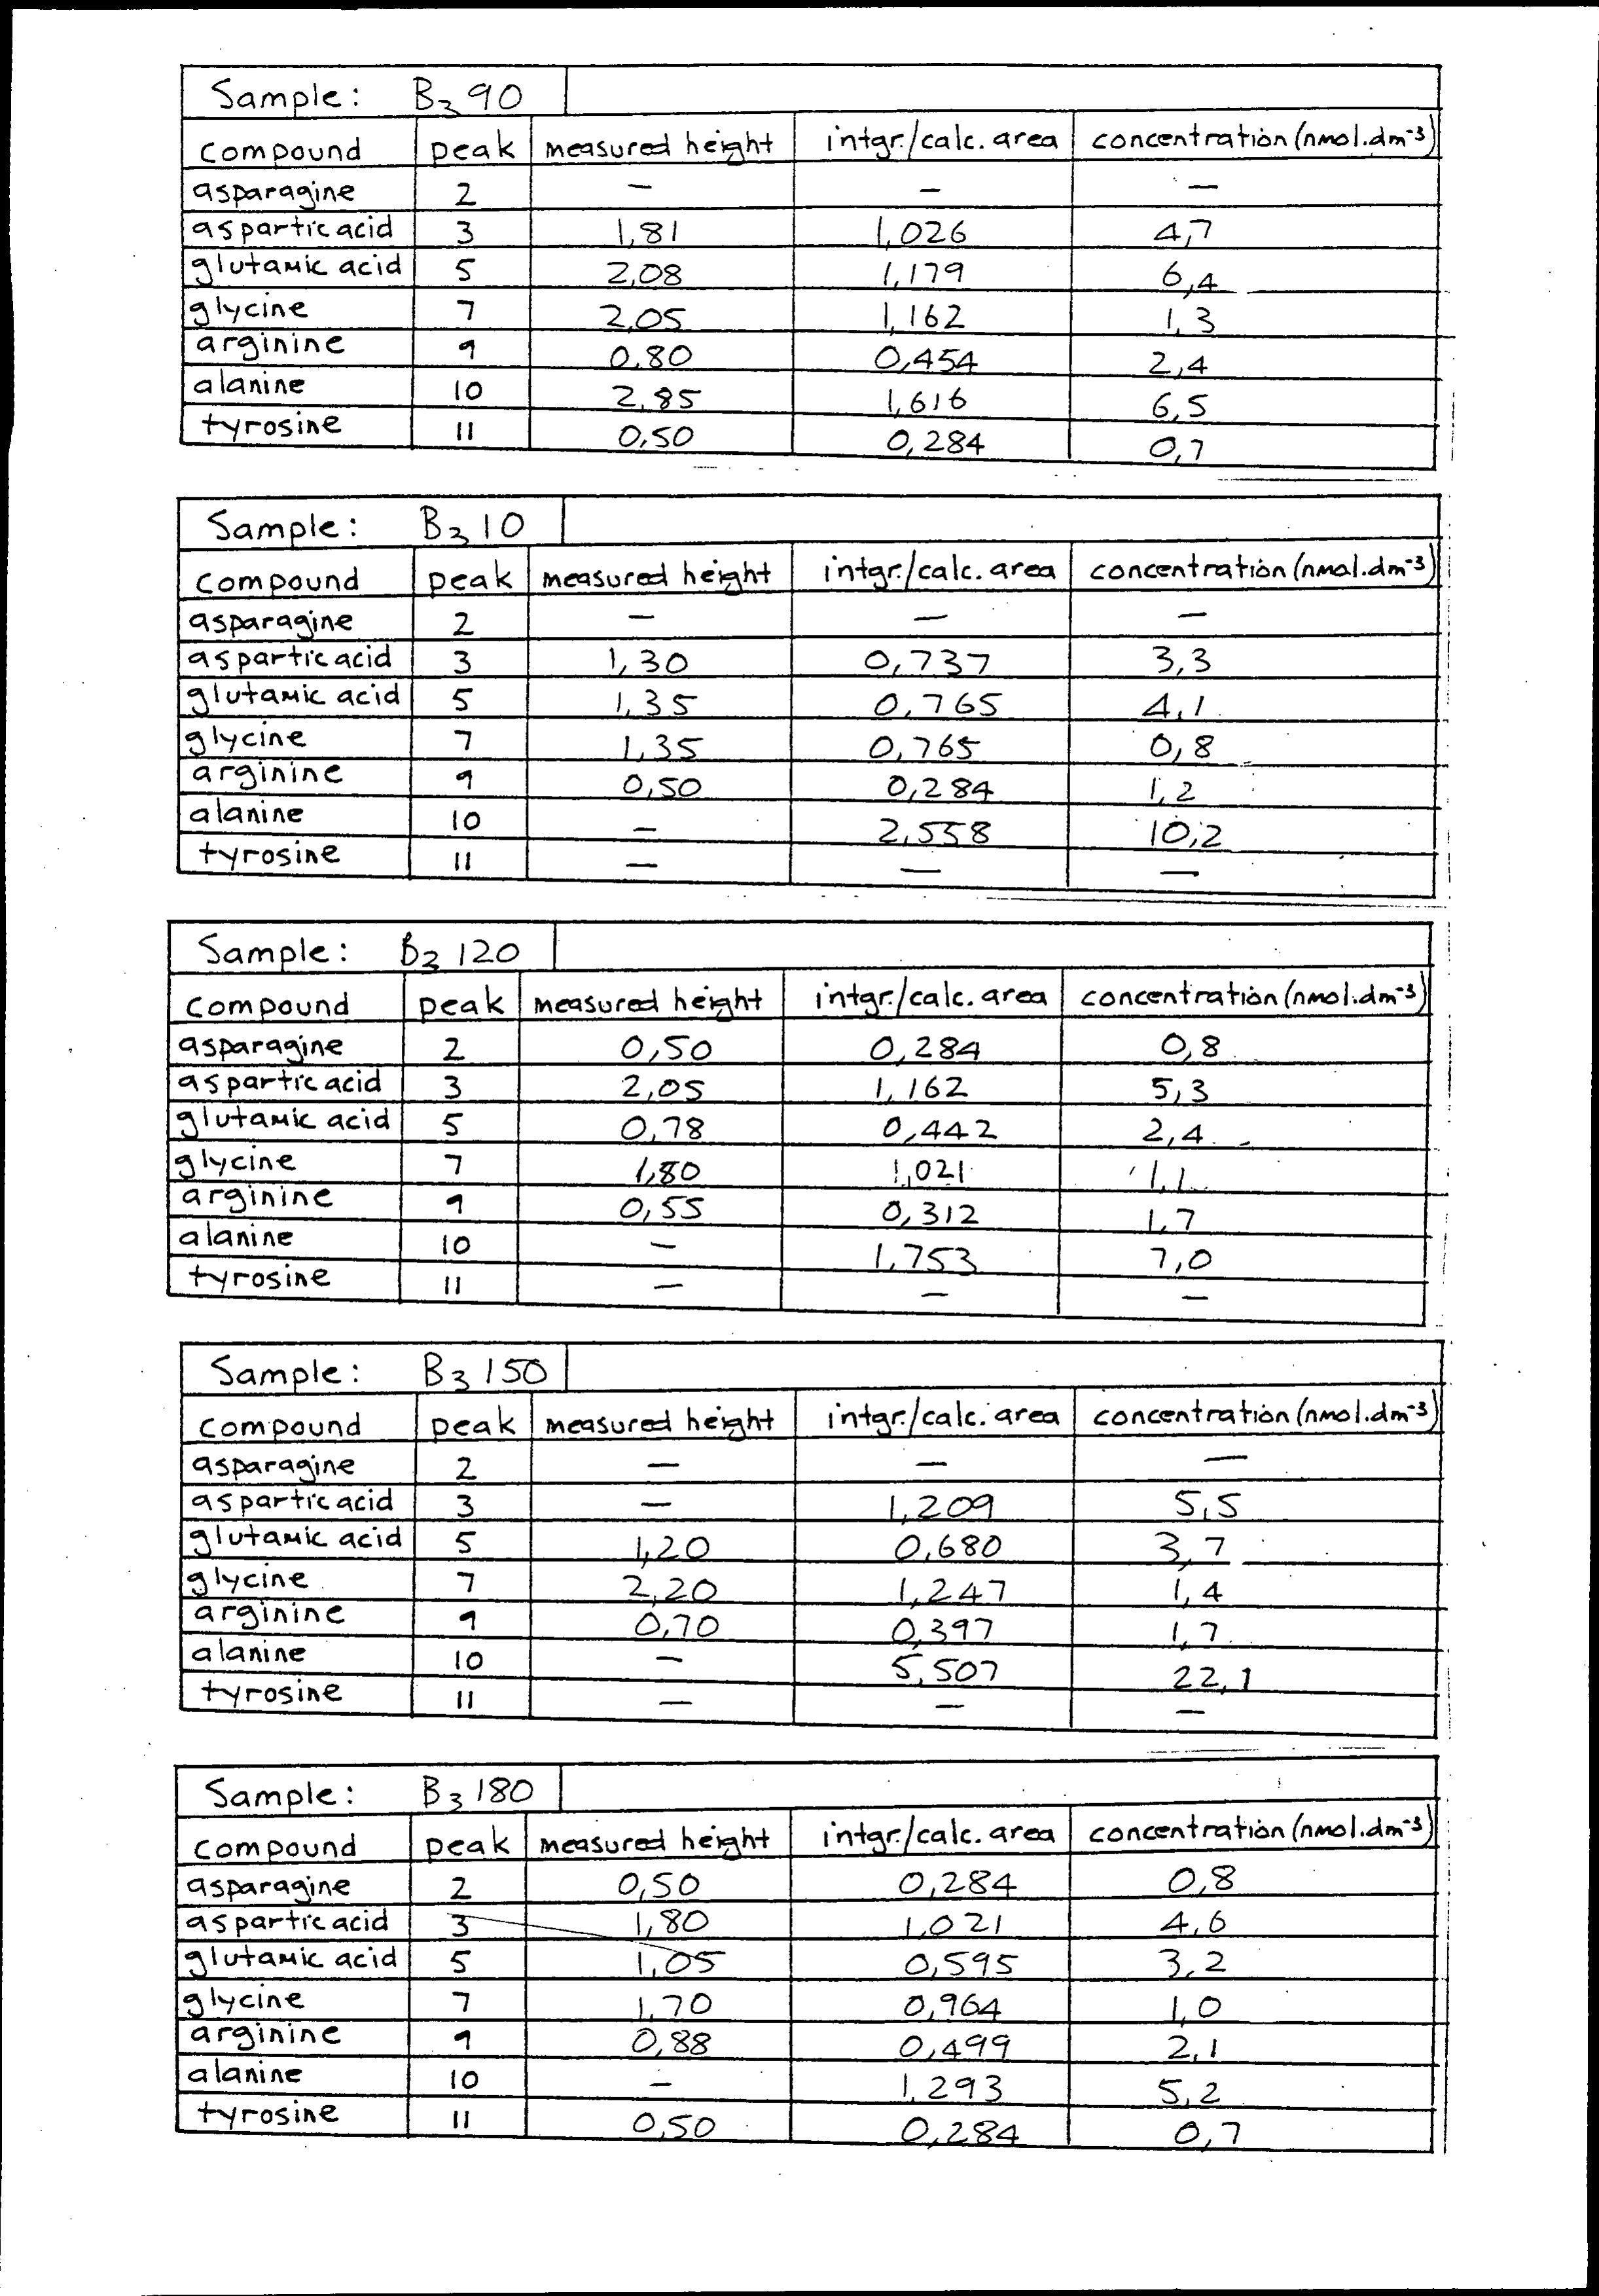 Sample: B3 90
compound peak measured height intgr./calc. area concentration (nmol.dm-3)
asparagine 2 — — —
aspartic acid 3 1,81 1,026 4,7
glutamic acid 5 2,08 1,179 6,4
glycine 7 2,05 1,162 1,3
arginine 9 0,80 0,454 2,4
alanine 10 2,85 1,616 6,5
tyrosine 11 0,50 0,284 0,7
Sample: B3 10
compound peak measured height intgr./calc. area concentration (nmol.dm-3)
asparagine 2 — — —
aspartic acid 3 1,30 0,737 3,3
glutamic acid 5 1,35 0,765 4,1
glycine 7 1,35 0,765 0,8
arginine 9 0,50 0,284 1,2
alanine 10 — 2,558 10,2
tyrosine 11 — — —
Sample: B3 120
compound peak measured height intgr./calc. area concentration (nmol.dm-3)
asparagine 2 0,50 0,284 0,8
aspartic acid 3 2,05 1,162 5,3
glutamic acid 5 0,78 0,442 2,4
glycine 7 1,80 1,021 1,1
arginine 9 0,55 0,312 1,7
alanine 10 — 1,753 7,0
tyrosine 11 — — —
Sample: B3 150
compound peak measured height intgr./calc. area concentration (nmol.dm-3)
asparagine 2 — — —
aspartic acid 3 — 1,209 5,5
glutamic acid 5 1,20 0,680 3,7
glycine 7 2,20 1,247 1,4
arginine 9 0,70 0,397 1,7
alanine 10 — 5,507 22,1
tyrosine 11 — — —
Sample: B3 180
compound peak measured height intgr./calc. area concentration (nmol.dm-3)
asparagine 2 0,50 0,284 0,8
aspartic acid 3 1,80 1,021 4,6
glutamic acid 5 1,05 0,595 3,2
glycine 7 1,70 0,964 1,0
arginine 9 0,88 0,499 2,1
alanine 10 — 1,293 5,2
tyrosine 11 0,50 0,284 0,7